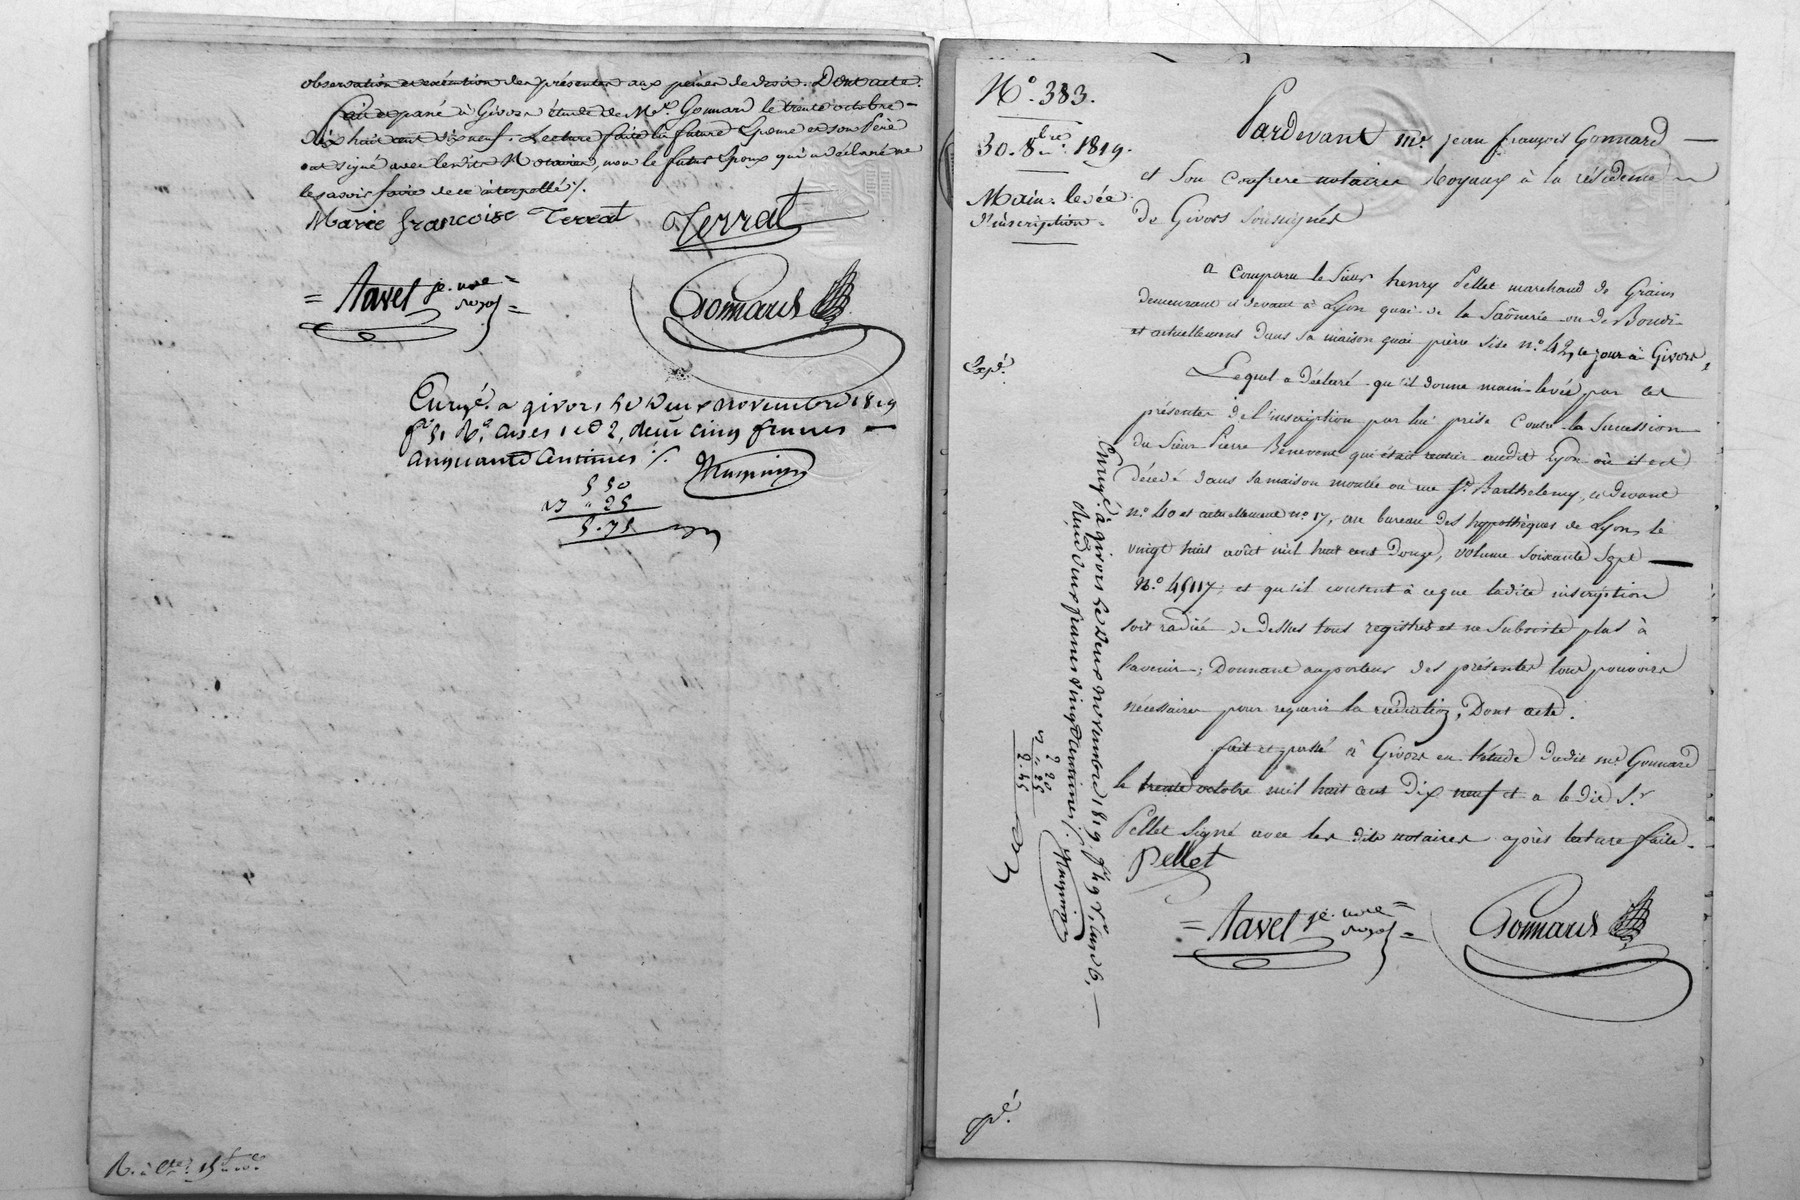 observation et exécution des présentes aux peines de droit. Dont acte.
fait et passé à Givors étude de Me. Gonnard le trente octobre
dix huit cent dix neuf. Lecture faite la future Epouse et son Père
ont signé avec lesdits Notaires, non le futur Epoux qui a déclaré ne
le savoir faire de ce interpellé /.
Marie françoise Terrat Terrat
= Tavel je. nore = Gonnard
royal =
Enregé. a givors le deux novembre 1819
fo 51 Ro. cases 1 et 2, reçu cinq francs
cinquante centimes /.
5 50
" 55
No. 383.
30. 8bre. 1819.
Main-levée
d'inscription.
Pardevant Me. jean françois Gonnard
et Son Confrere notaires Royaux à la résidence
de Givors Soussignés
a Comparu le Sieur henry Pellet marchand de Grains
demeurant ci devant à Lyon quai de la Saônerie ou de Bondi
et actuellement dans sa maison quai pierre Sise no. 42, ce jour à Givors,
Expé.
Lequel a déclaré qu'il donne main-levée par ces
présentes de l'inscription par lui prise Contre la Succession
du Sieur Pierre Benevent qui était rentier audit Lyon où il est
décédé dans sa maison montée ou rue St. Barthelemy, ci devant
no. 40 et actuellement no. 17, au bureau des hypothèques de Lyon, le
vingt huit août mil huit cent Douze, volume Soixante Sept
No. 45117, et qu'il consent à ce que ladite inscription
soit radiée de dessus tous registres et ne Subsiste plus à
l'avenir; Donnant au porteur des présentes tous pouvoirs
nécessaires pour requerir la radiation, Dont acte.
fait et passé à Givors en l'étude dudit me Gonnard
le trente octobre mil huit cent Dix neuf et a ledit Sr.
Pellet Signé avec les dits notaires après lecture faite.
Pellet
= Tavel je. nore = Gonnard
royal =
Enregé. à givors le deux novembre 1819 fo 49 Vo, case 6,
reçu deux francs vingt centimes /.
2 20
" 25
2. 45
Expé.